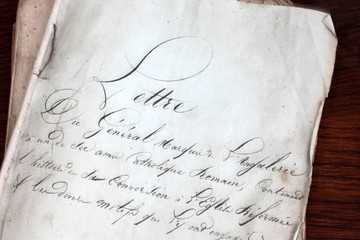 Lettre
Du Général Marquis de Langalerie
à un de ses amis Catholique Romain, contenant
l'histoire de sa Conversion à l'Eglise Réformée
& les deux motifs qui l'y ont